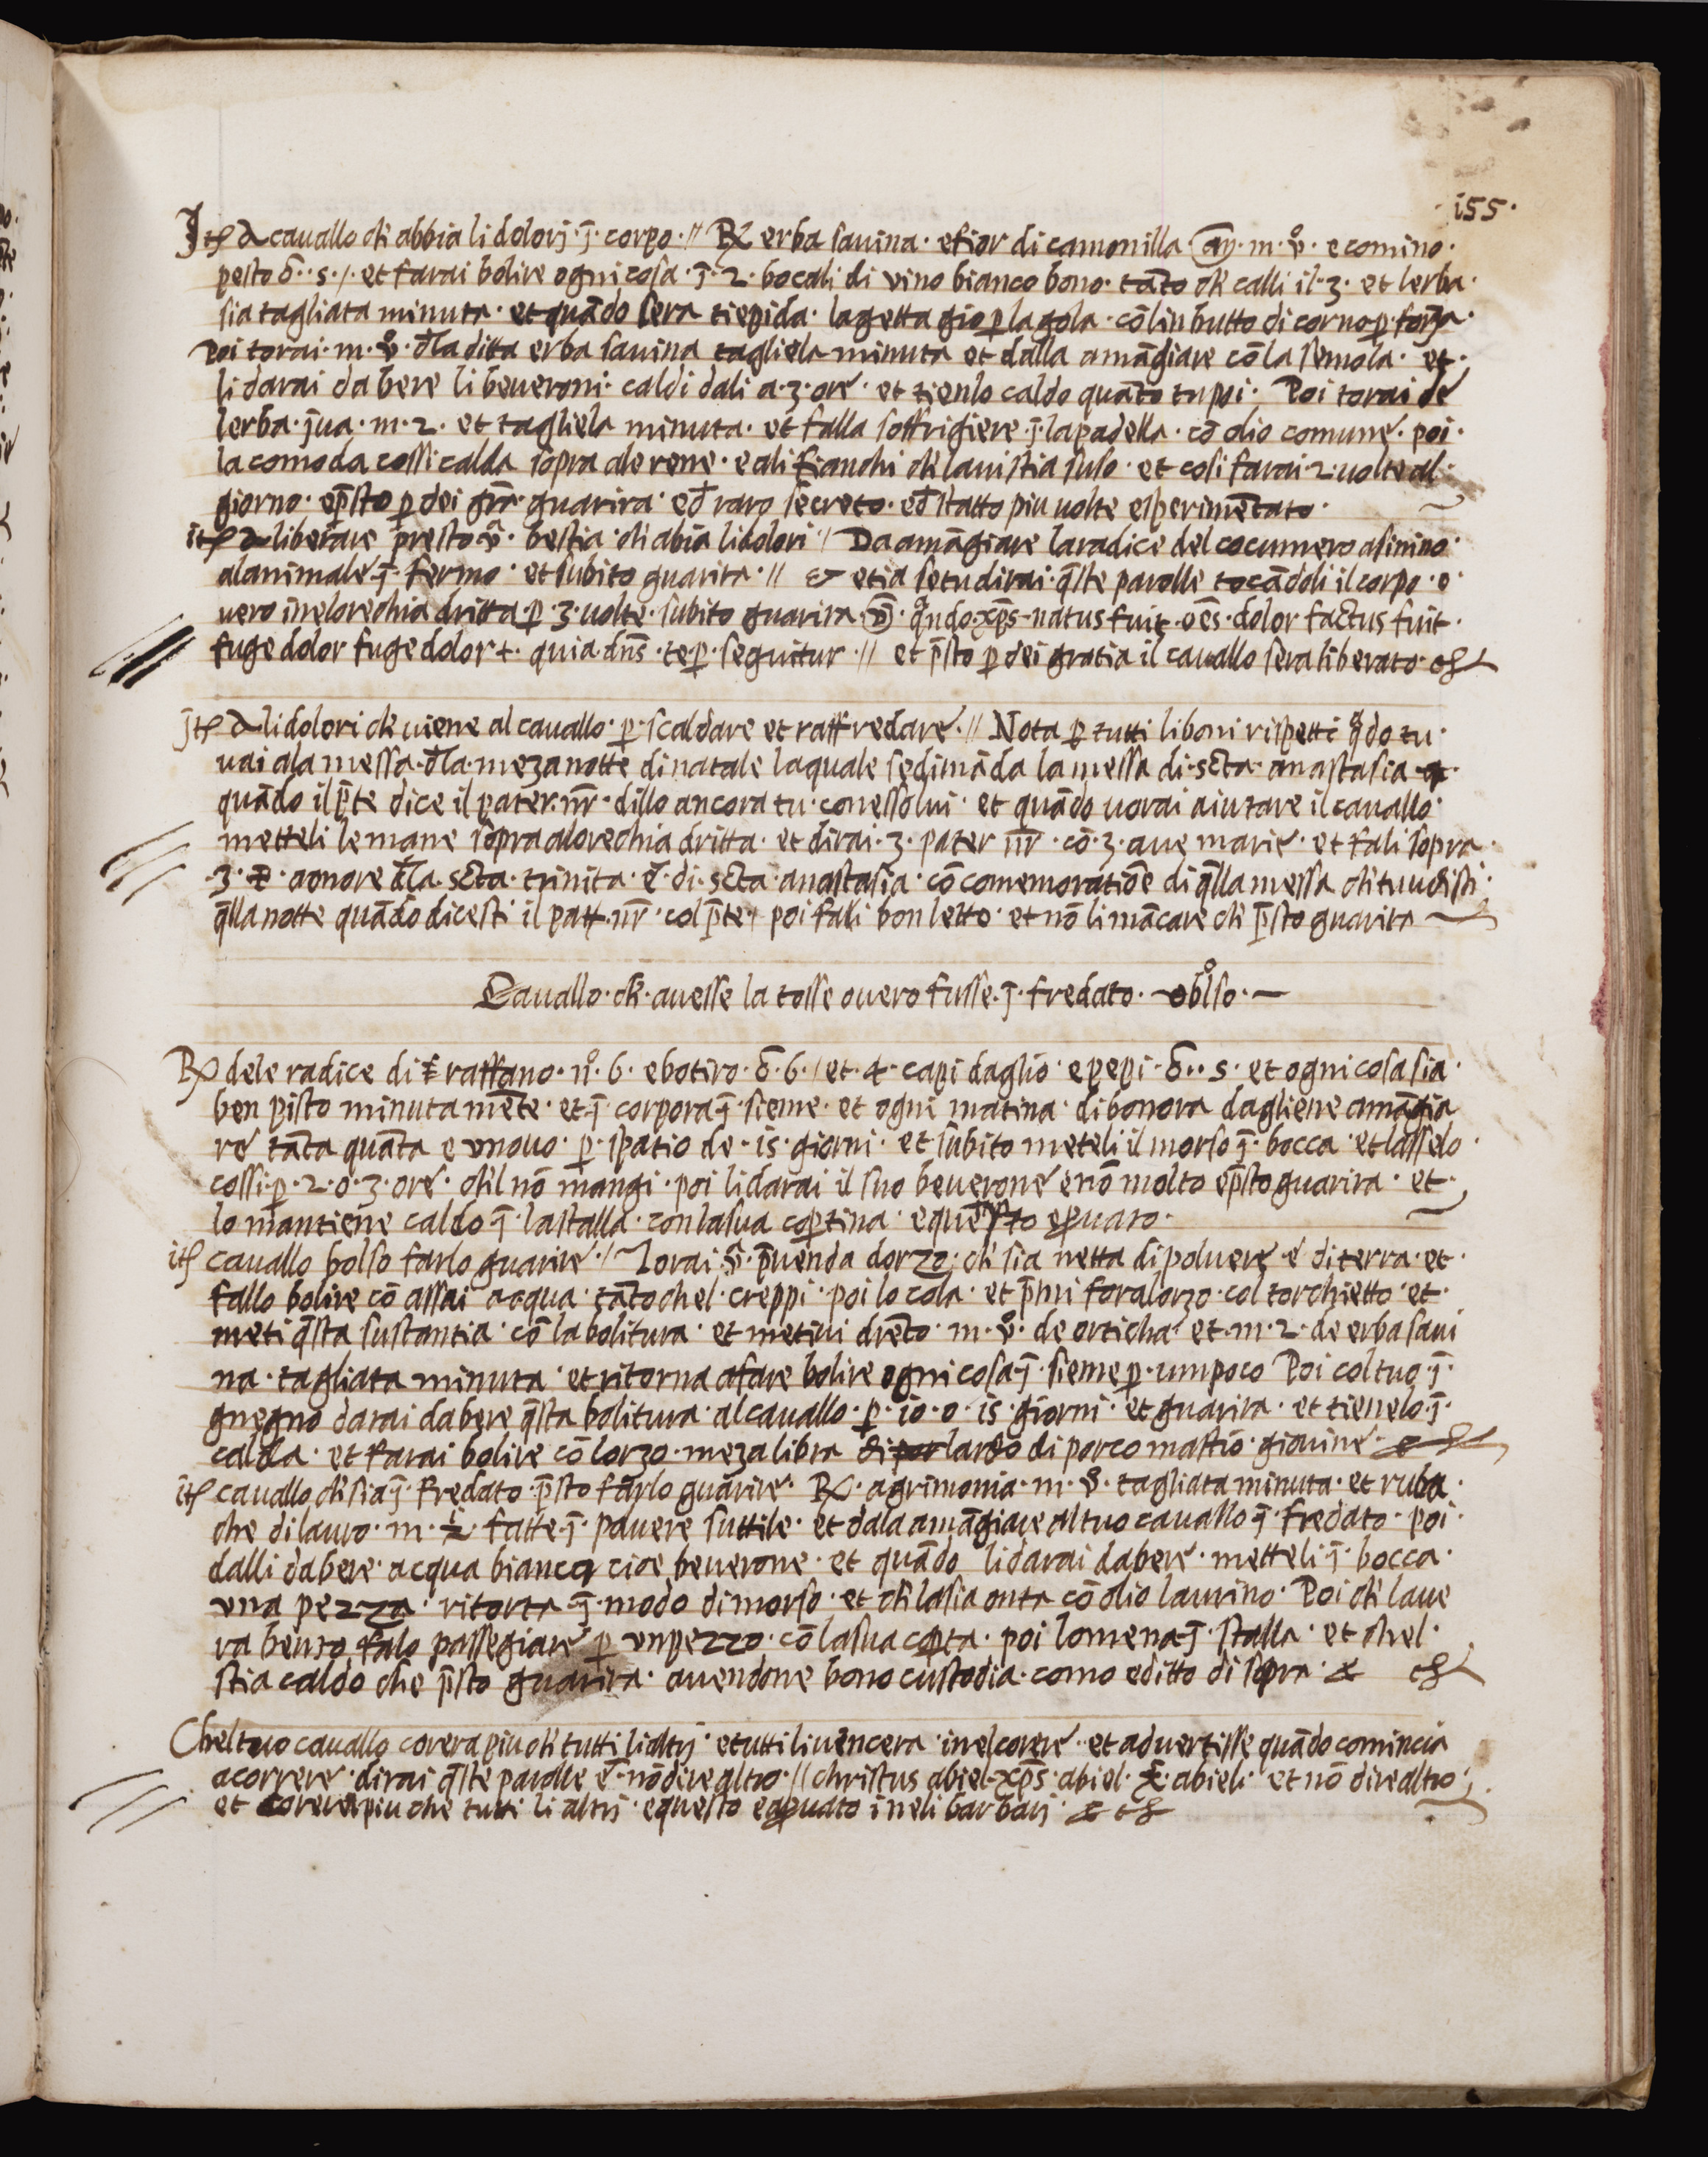 ·i55·
Jtꝭ A cauallo ch̄ abbia li dolorj ·j̄· corpo·// ℞ erba sauina· e fior di camomilla ·añ· m·v̊· e comino·
pesto ʒ̄··s·/· et farai bolire ogni cosa ·j̄· 2· bocali di vino bianco bono· tāto ch̄ calli il·3· et lerba·
sia tagliata minuta· et quādo sera tiepida· la getta gio ꝑ la gola· cō lin butto di corno ꝑ· forza·
Poi torai·m·v̊· d̄la ditta erba sauina tagliela minuta et dalla a māgiare cō la semola· et·
li darai da bere li beueroni· caldi dali a·3·ore· et tienlo caldo quāto tu poi· Poi torai de
lerba·jua·m·2· et tagliela minuta· et falla soffrigiere ·j̄· la padella· cō olio comune· poi·
la comoda cossi calda sopra ale rene· e ali fianchi ch̄ lauistia suso· et cosi farai·2·uolte al·
giorno· e p̄sto ꝑ dei gr̄a· guarira· ed̄ raro secreto· ed̄ statto piu uolte esperimētato·
itꝭ A liberare presto v̄· bestia ch̄ abia li dolori // Da a māgiare la radice del cocumero asinino·
al animale ·j̄· fermo· et subito guarira·// & etiā se tu dirai·q̄ste parolle tocādoli il corpo·o·
uero inelorechia dritta·ꝑ·3·uolte·subito guarira·v̄· qn̄do·xp̄s·natus fuit·oēs·dolor factus fuit·
fuge dolor fuge dolor +· quia dn̄s·te ꝑ·seguitur·// et p̄sto ꝑ dei gratia il cauallo sera liberato·
jtꝭ A li dolori ch̄ uiene al cauallo· ꝑ·scaldare et raffredare·// Nota ꝑ tutti li boni rispetti q̄do tu·
uai ala messa·d̄la·meza notte di natale laquale se dimāda la messa di·scta·anastasia·
quādo il p̄te dice il pater·nr̄·dillo ancora tu·con esso lui· et quādo uorai aiutare il cauallo·
metteli le mane sopra alorechia dritta· et dirai·3·pater nr̄·cō·3·aue marie· et fali sopra·
·3·✠·a onore d̄la·scta·trinita·e·di·scta·anastasia·cō comemoratiōe di q̄lla messa ch̄ tu udisti·
q̄lla notte quādo dicesti il patt·nr̄·col p̄te· poi fali bon letto· et nō li mācare ch̄ p̄sto guarira
Cauallo·ch̄·auesse la tosse ouero fusse·j̄·fredato· o bolso·
℞ dele radice di raffano·n̊·6· e botiro·ʒ̄·6·/et·4·capi daglio· e pepi·ʒ̄··s· et ogni cosa sia·
ben pisto minutamēte· et j̄ corpora j̄·sieme· et ogni matina·di bonora dagliene a māgia
re tāta quāta e un ouo· ꝑ·spatio de·is·giorni· et subito meteli il morso j̄·bocca·et lasselo·
cossi·ꝑ·2·o·3·ore·ch̄l nō mangi·poi li darai il suo beuerone e nō molto e p̄sto guarira·et·
lo mantiene caldo j̄·la stalla·con la sua coꝑtina· e questo e ꝓuato·
itꝭ cauallo bolso farlo guarire·/ Torai·v̄·p̄uenda dorzo·ch̄ sia netta di poluere e di terra·et·
fallo bolire cō assai acqua·tāto chel·creppi·poi lo cola· et p̄mi fora lorzo·col torchietto·et·
meti q̄sta sustantia·cō la bolitura· et metiui drēto·m·v̊·de orticha· et·m·2·de erba saui
na·tagliata minuta·et ritorna a fare bolire ogni cosa j̄·sieme ꝑ·umpoco Poi col tuo j̄·
gnegno darai da bere q̄sta bolitura·al cauallo·ꝑ·io·o·is·giorni·et guarira·et tienelo·j̄·
calda· et farai bolire cō lorzo·meza libra di lardo di porco mastio·giouine·
itꝭ cauallo ch̄ sia j̄·fredato·p̄sto farlo guarire· ℞·agrimonia·m·v̊·tagliata minuta·et ruba·
che di lauro·m·½·fatte·j̄·poluere suttile·et dala a māgiare al tuo cauallo j̄·fredato·poi·
dalli da bere·acqua bianca cioe beuerone·et quādo li darai da bere·metteli j̄·bocca·
una pezza·ritorta j̄·modo di morso·et ch̄ la sia onta cō olio laurino· Poi ch̄ laue
ra beuto falo passegiare ꝑ un pezzo·cō la sua coꝑta·poi lo mena·j̄·stalla·et chel·
stia caldo che p̄sto guarira·auendone bono custodia·como e ditto di sopra·&
Chel tuo cauallo corera piu ch̄ tutti li altrj·e tutti li uencera·inel corere··et aduertisse quādo comincia
a correre·dirai q̄ste parolle e·nō dire altro·// christus abiel·xp̄s·abiel·x̄·abieli·et nō dire altro·
et corera piu che tutti li altrj·e questo e ꝓuato ineli barbarj·&